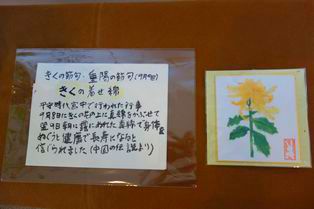 きくの節句・重陽の節句(9月9日)
きくの着せ綿
平安時代宮中で行われた行事
9月8日にきくの花の上に真綿をかぶせて
翌9日朝に露にぬれた真綿で身体を
ぬぐうと健康で長寿になると
信じられました(中国の伝説より)